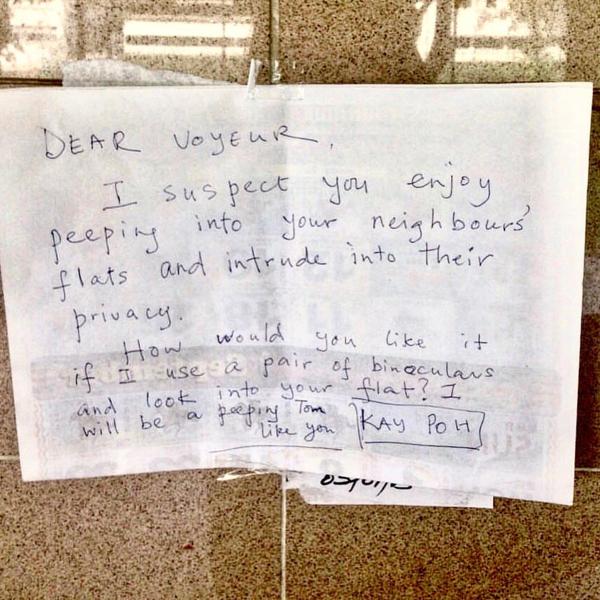 DEAR VOYEUR,
I suspect you enjoy
peeping into your neighbours'
flats and intrude into their
privacy.
How would you like it
if I use a pair of binoculars
and look into your flat? I
will be a peeping Tom
like you
KAY POH